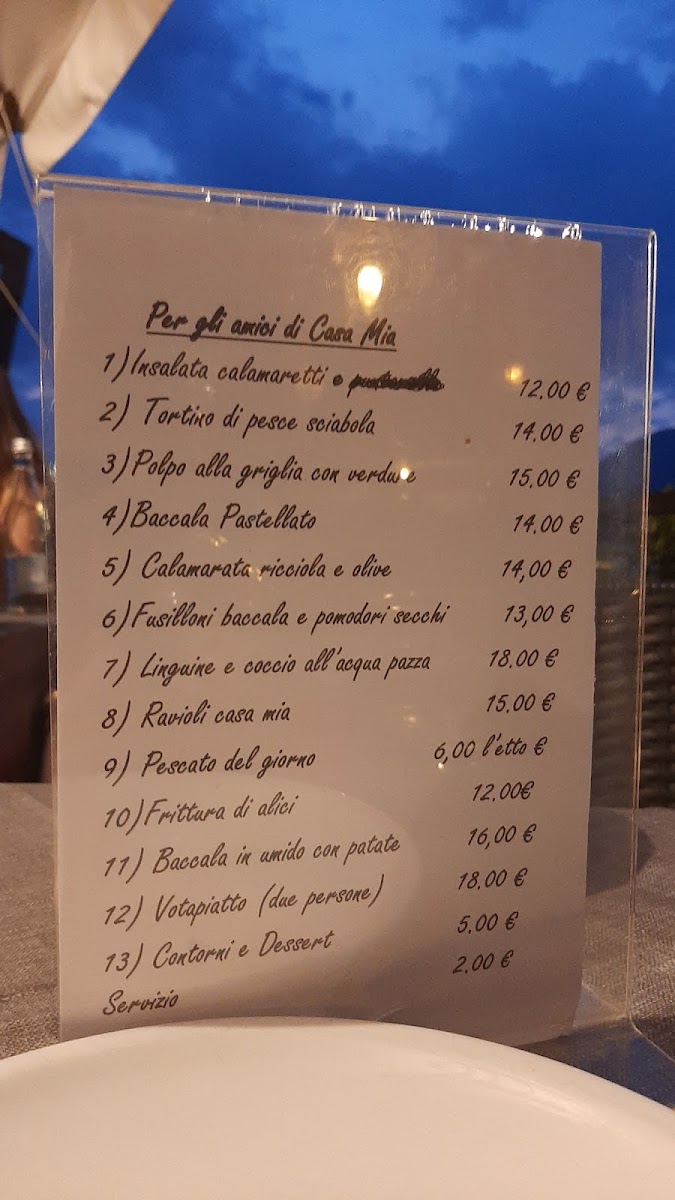 Per gli amici di Casa Mia
1) Insalata calamaretti e 12.00 €
2) Tortino di pesce sciabola 14.00 €
3) Polpo alla griglia con verdure 15.00 €
4) Baccala Pastellato 14.00 €
5) Calamarata ricciola e olive 14,00 €
6) Fusilloni baccala e pomodori secchi 13,00 €
7) Linguine e coccio all'acqua pazza 18.00 €
8) Ravioli casa mia 15.00 €
9) Pescato del giorno 6,00 l'etto €
10) Frittura di alici 12.00€
11) Baccala in umido con patate 16,00 €
12) Votapiatto (due persone) 18.00 €
13) Contorni e Dessert 5.00 €
Servizio 2.00 €